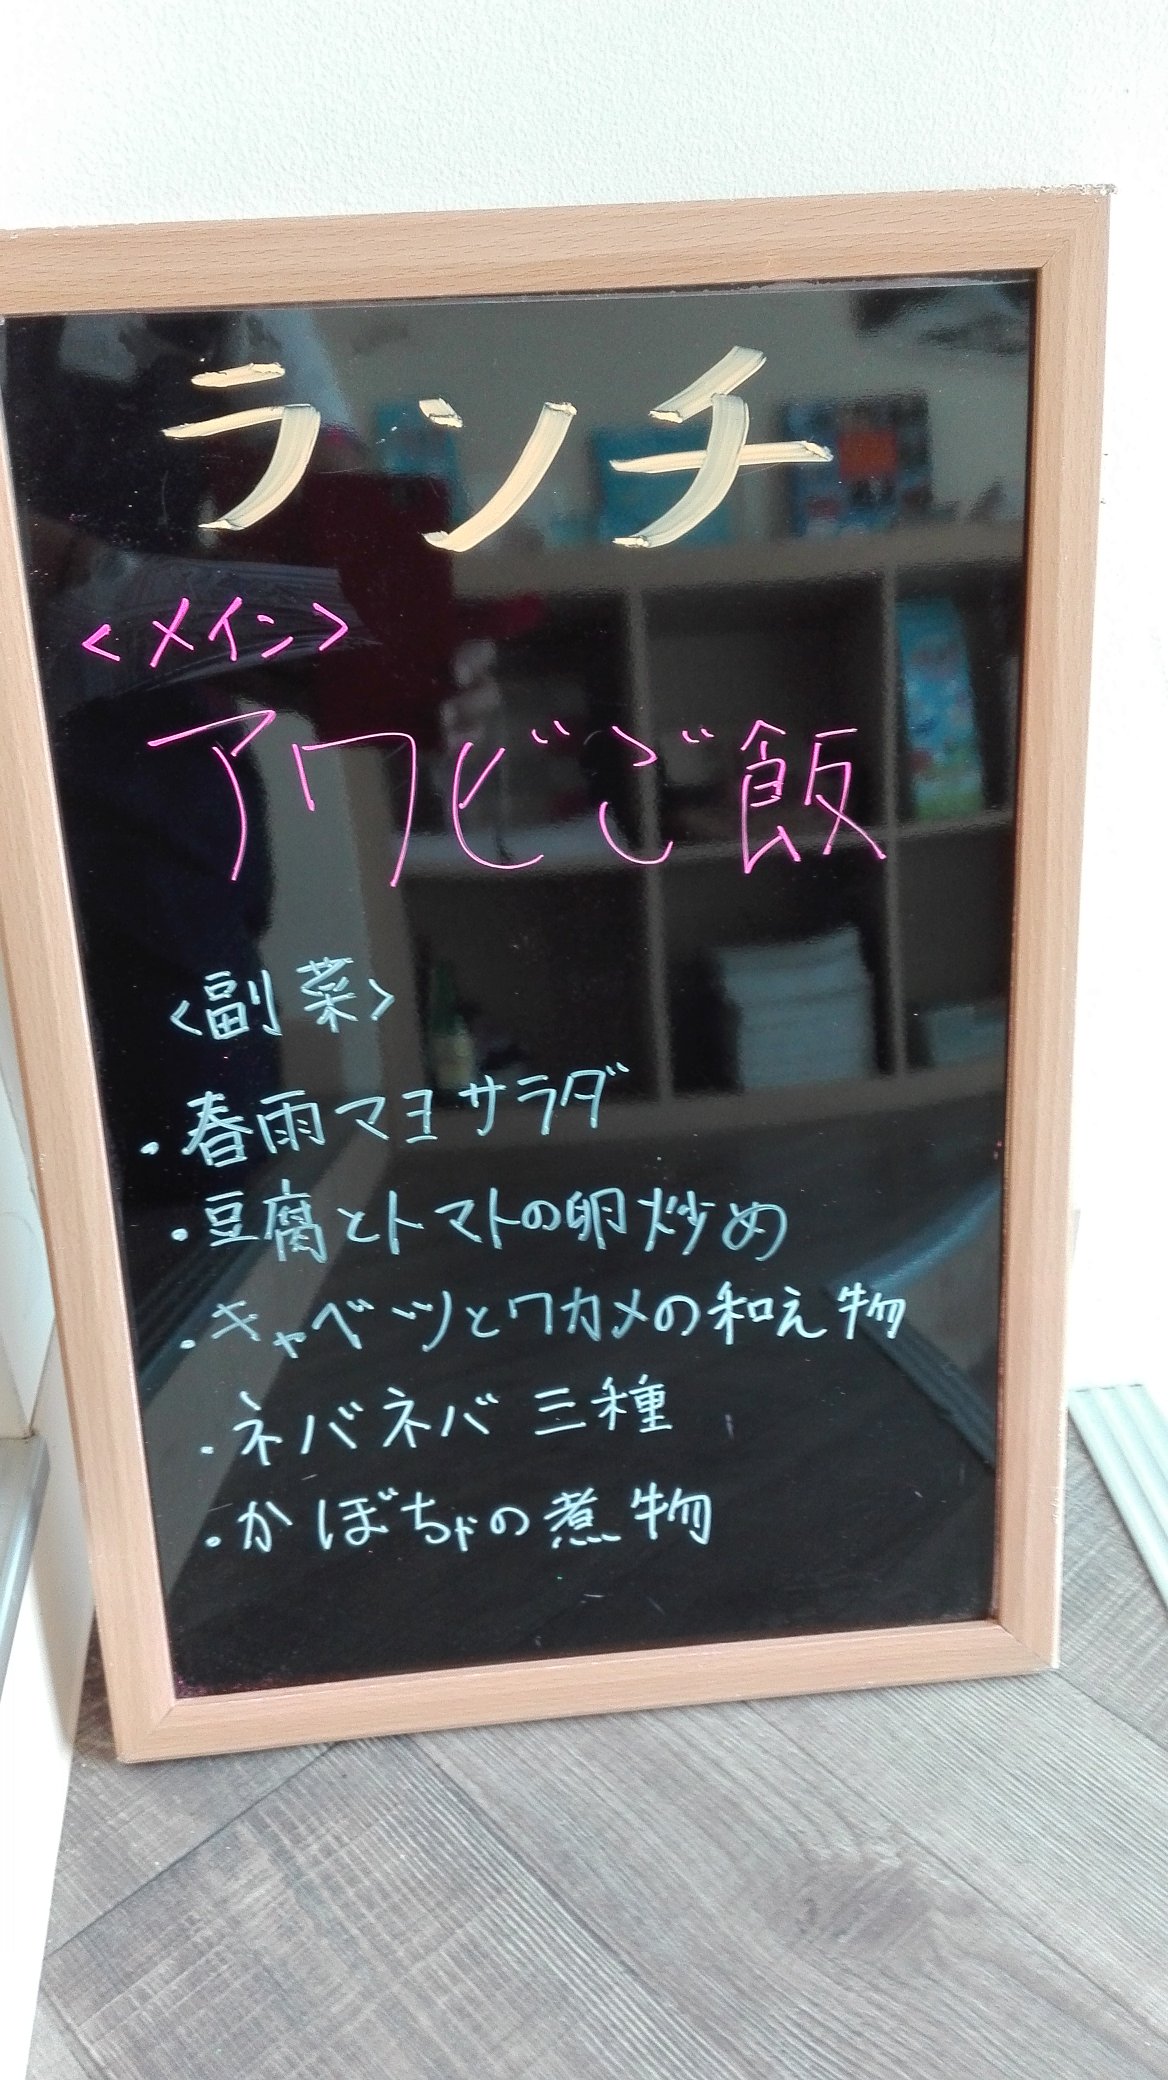 ランチ
<メイン>
アワビご飯
<副菜>
・春雨マヨサラダ
・豆腐とトマトの卵炒め
・キャベツとワカメの和え物
・ネバネバ三種
・かぼちゃの煮物